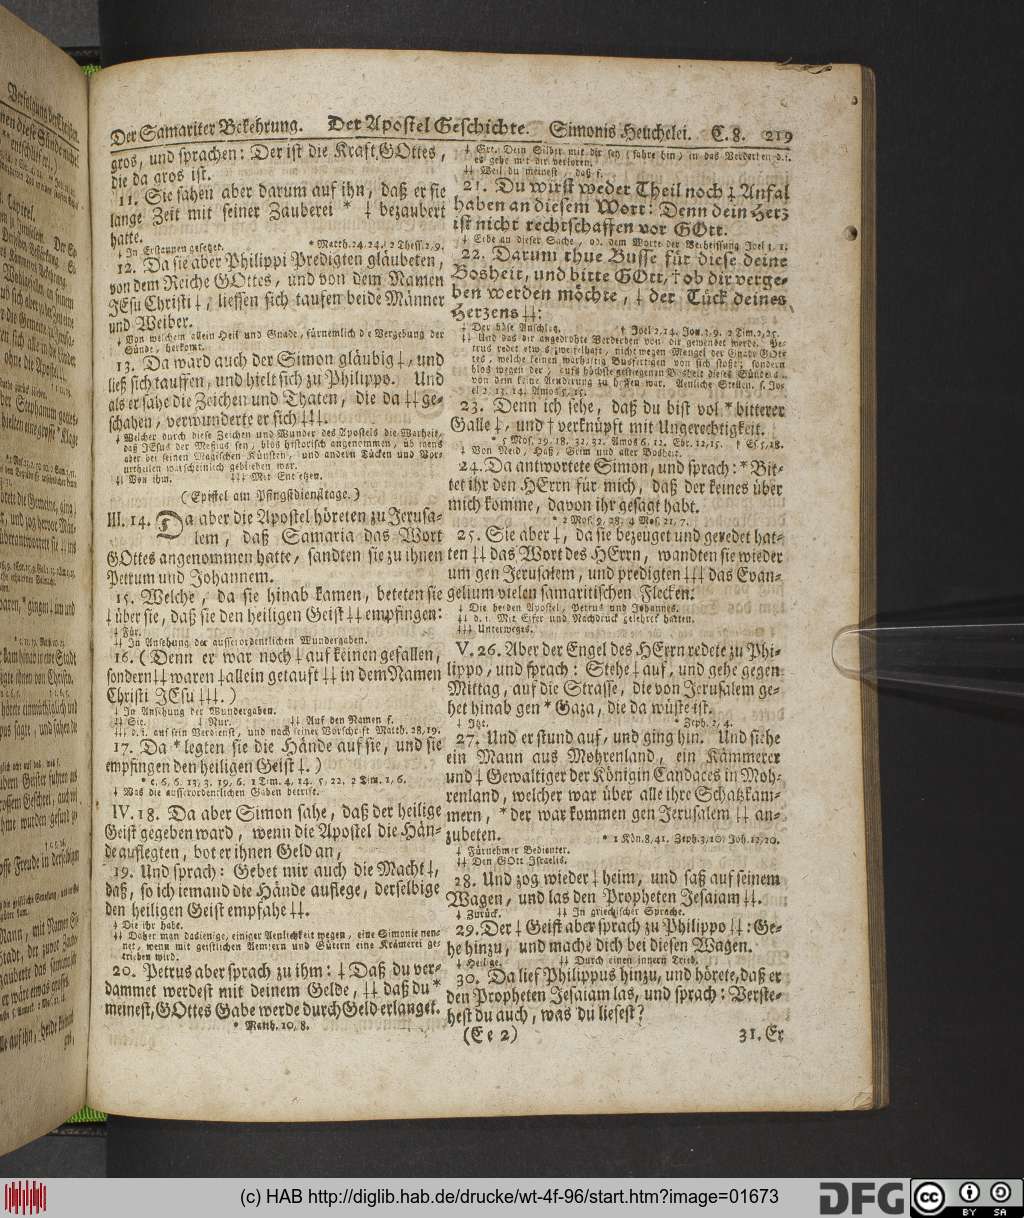 Der Samariter Bekehrung. Der Apostel Geschichte. Simonis Heuchelei. C. 8. 219
gros, und sprachen: Der ist die Kraft GOttes,
die da gros ist.
11. Sie sahen aber darum auf ihn, daß er sie
lange Zeit mit seiner Zauberei * ‡ bezaubert
hatte. * Matth. 24, 24. 2 Thess. 2, 9.
‡ In Erstaunen gesetzet.
12. Da sie aber Philippi Predigten gläubeten,
von dem Reiche GOttes, und von dem Namen
JEsu Christi ‡, liessen sich taufen beide Männer
und Weiber.
‡ Von welchem allein Heil und Gnade, fürnemlich die Vergebung der
Sünde, herkomt.
13. Da ward auch der Simon gläubig ‡, und
ließ sich tauffen, und hielt sich zu Philippo. Und
als er sahe die Zeichen und Thaten, die da ‡‡ ge-
schahen, verwunderte er sich ‡‡‡.
‡ Welcher durch diese Zeichen und Wunder des Apostels die Warheit,
daß JEsus der Meßias sey, blos historisch angenommen, übrigens
aber bei seinen Magischen Künsten, und andern Tücken und Vor-
urtheilen warscheinlich geblieben war.
‡‡ Von ihm. ‡‡‡ Mit Entsetzen.
(Epistel am Pfingstdienstage.)
III. 14. Da aber die Apostel höreten zu Jerusa-
lem, daß Samaria das Wort
GOttes angenommen hatte, sandten sie zu ihnen
Petrum und Johannem.
15. Welche, da sie hinab kamen, beteten sie
‡ über sie, daß sie den heiligen Geist ‡‡ empfingen:
‡ Für.
‡‡ In Ansehung der ausserordentlichen Wundergaben.
16. (Denn er war noch ‡ auf keinen gefallen,
sondern ‡‡ waren ‡ allein getauft ‡‡ in dem Namen
Christi JEsu ‡‡‡.)
‡ In Ansehung der Wundergaben.
‡‡ Sie. ‡ Nur. ‡‡ Auf den Namen f.
‡‡‡ d. i. auf sein Verdienst, und nach seiner Vorschrift Matth. 28, 19.
17. Da * legten sie die Hände auf sie, und sie
empfingen den heiligen Geist ‡.)
* c. 6, 6. 13, 3. 19, 6. 1 Tim. 4, 14. 5, 22. 2 Tim. 1, 6.
‡ Was die ausserordentlichen Gaben betrift.
IV. 18. Da aber Simon sahe, daß der heilige
Geist gegeben ward, wenn die Apostel die Hän-
de auflegten, bot er ihnen Geld an,
19. Und sprach: Gebet mir auch die Macht ‡,
daß, so ich iemand die Hände auflege, derselbige
den heiligen Geist empfahe ‡‡.
‡ Die ihr habe.
‡‡ Daher man dasienige, einiger Aenlichkeit wegen, eine Simonie nen-
net, wenn mit geistlichen Aemtern und Gütern eine Krämerei ge-
trieben wird.
20. Petrus aber sprach zu ihm: ‡ Daß du ver-
dammet werdest mit deinem Gelde, ‡‡ daß du *
meinest, GOttes Gabe werde durch Geld erlanget.
* Matth. 10, 8.
‡ Gr.: Dein Silber mit dir sey (fahre hin) in das Verderben d. i.
es gehe mit dir verloren.
‡‡ Weil du meinest, daß f.
21. Du wirst weder Theil noch ‡ Anfal
haben an diesem Wort: Denn dein Herz
ist nicht rechtschaffen vor GOtt.
‡ Erbe an dieser Sache, od. dem Worte der Verheissung Joel 1, 1.
22. Darum thue Busse für diese deine
Bosheit, und bitte GOtt, † ob dir verge-
ben werden möchte, ‡ der Tück deines
Herzens ‡‡:
‡ Der böse Anschlag. † Joel 2, 14. Jon. 3, 9. 2 Tim. 2, 25.
‡‡ Und das dir angedrohte Verderben von dir gewendet werde. Pe-
trus redet etwas zweifelhaft, nicht wegen Mangel der Gnade GOt-
tes, welche keinen warhaftig Busfertigen von sich stoßt; sondern
blos wegen der, aufs höchste gestiegenen Bosheit dieses Sünders,
von dem keine Aenderung zu hoffen war. Aenliche Stellen. s. Jo-
el 2, 13. 14. Amos 5, 15.
23. Denn ich sehe, daß du bist vol * bitterer
Galle ‡, und † verknüpft mit Ungerechtigkeit.
* 5 Mos. 29, 18. 32, 32. Amos 6, 12. Ebr. 12, 15. † Es. 5, 18.
‡ Von Neid, Haß, Grim und aller Bosheit.
24. Da antwortete Simon, und sprach: * Bit-
tet ihr den HErrn für mich, daß der keines über
mich komme, davon ihr gesagt habt.
* 2 Mos. 9, 28. 4 Mos. 21, 7.
25. Sie aber ‡, da sie bezeuget und geredet hat-
ten ‡‡ das Wort des HErrn, wandten sie wieder
um gen Jerusalem, und predigten ‡‡‡ das Evan-
gelium vielen samaritischen Flecken.
‡ Die beiden Apostel, Petrus und Johannes.
‡‡ d. i. Mit Eifer und Nachdruck gelehret hatten.
‡‡‡ Unterweges.
V. 26. Aber der Engel des HErrn redete zu Phi-
lippo, und sprach: Stehe ‡ auf, und gehe gegen
Mittag, auf die Strasse, die von Jerusalem ge-
het hinab gen * Gaza, die da wüste ist.
‡ Itzt. * Zeph. 2, 4.
27. Und er stund auf, und ging hin. Und siehe
ein Mann aus Mohrenland, ein Kämmerer
und ‡ Gewaltiger der Königin Candaces in Moh-
renland, welcher war über alle ihre Schatzkam-
mern, * der war kommen gen Jerusalem ‡‡ an-
zubeten. * 1 Kön. 8, 41. Zeph. 3, 10. Joh. 12, 20.
‡ Fürnehmer Bedienter.
‡‡ Den GOtt Israelis.
28. Und zog wieder ‡ heim, und saß auf seinem
Wagen, und las den Propheten Jesaiam ‡‡.
‡ Zurück. ‡‡ In griechischer Sprache.
29. Der ‡ Geist aber sprach zu Philippo ‡‡: Ge-
he hinzu, und mache dich bei diesen Wagen.
‡ Heilige. ‡‡ Durch einen innern Trieb.
30. Da lief Philippus hinzu, und hörete, daß er
den Propheten Jesaiam las, und sprach: Verste-
hest du auch, was du liesest?
(Ee 2) 31. Er
(c) HAB http://diglib.hab.de/drucke/wt-4f-96/start.htm?image=01673
DFG
cc BY SA